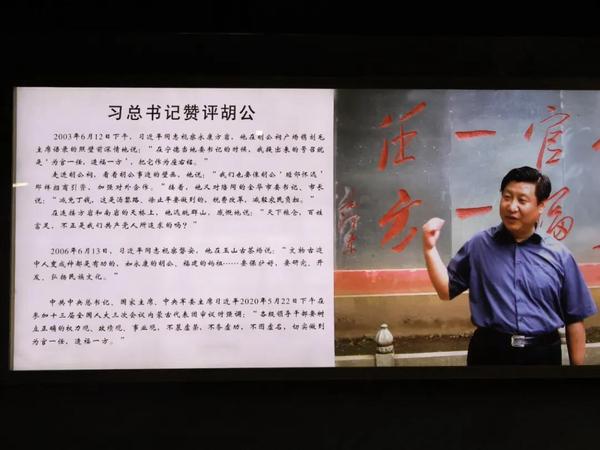 习总书记赞评胡公
2003年6月12日下午，习近平同志视察永康方岩，他在胡公祠广场铸刻毛
主席语录的照壁前深情地说：“在宁德当地委书记的时候，我提出来的警召就
是‘为官一任，造福一方’，把它作为座右铭。”
走进胡公祠，看着胡公事迹的壁画，他说：“我们也要像胡公‘睦邻怀远’
那样招商引资，加强对外合作。”接着，他又对陪同的金华市委书记、市长
说：“减免丁钱，这是德善路，除止平要做到的，税费改革，减轻农民负担。”
在连接方岩和南岩的天桥上，他远眺群山，感慨地说：“天下粮仓，百姓
富足，不正是我们共产党人所追求的吗？”
2006年6月13日，习近平同志视察磐安，他在玉山古茶场说：“文物古迹
中人变成神都是有功的，如永康的胡公、福建的妈祖……要保护好，要研究、开
发、弘扬民族文化。”
中共中央总书记、国家主席、中央军委主席习近平2020年5月22日下午在
参加十三届全国人大三次会议内蒙古代表团审议时强调：“各级领导干部要树
立正确的权力观、政绩观、事业观，不慕虚荣，不务虚功，不图虚名，切实做到
为官一任、造福一方。”
任一官
方一福